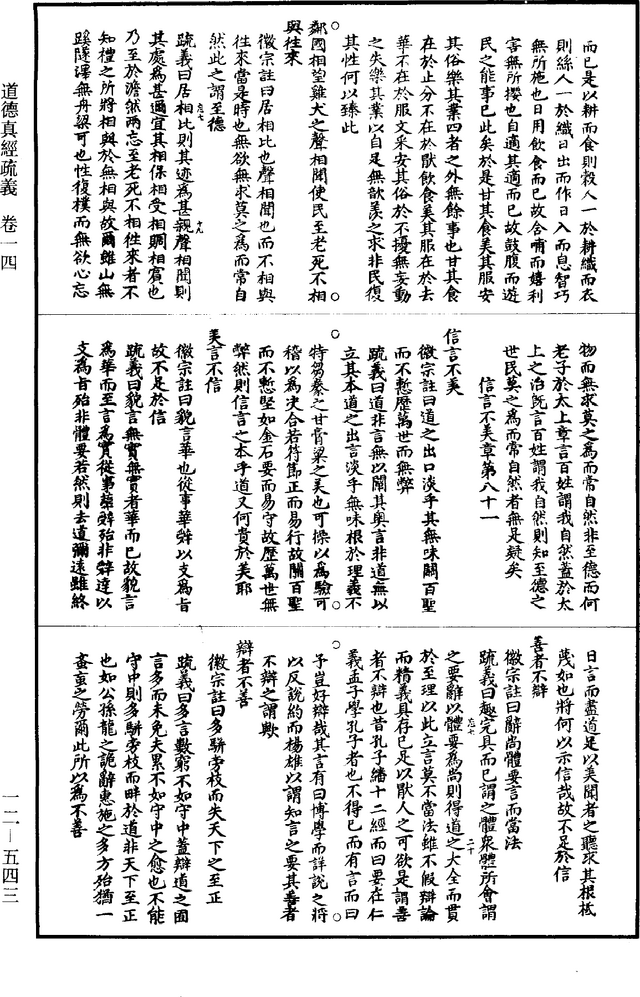 而已是以耕而食則穀人一於耕織而衣
則絲人一於織日出而作日入而息智巧
無所施也日用飲食而已故含哺而嬉利
害無所攖也自適其適而已故鼓腹而遊
民之能事已此矣於是甘其食美其服安
其俗樂其業四者之外無餘事也甘其食
在於止分不在於厭飲食美其服在於去
華不在於服文采安其俗於不擾無妄動
之失樂其業以自足無歆羨之求非民復
其性何以臻此
鄰國相望雞犬之聲相聞使民至老死不相
與往來
徽宗註曰居相比也聲相聞也而不相與
往來當是時也無欲無求莫之為而常自
然此之謂至德
疏義曰居相比則其迹為甚親聲相聞則
其處為甚邇宜其相保相受相賙相賓也
乃至於澹然兩忘至老死不相往來者不
知禮之所將相與於無相與故爾雖山無
蹊隧澤無舟梁可也性復樸而無欲心忘
物而無求莫之為而常自然非至德而何
老子於太上章言百姓謂我自然蓋於太
上之治既言百姓謂我自然則知至德之
世民莫之為而常自然者無足疑矣
信言不美章第八十一
信言不美
徽宗註曰道之出口淡乎其無味關百聖
而不慙歷萬世而無弊
疏義曰道非言無以闡其奧言非道無以
立其本道之出言淡乎無味根於理義不
特芻豢之甘膏粱之美也可操以為驗可
稽以為決合若符節正而易行故關百聖
而不慙堅如金石要而易守故歷萬世無
弊然則信言之本乎道又何貴於美耶
美言不信
徽宗註曰貌言華也從事華辭以支為旨
故不足於信
疏義曰貌言無實無實者華而已故貌言
為華而至言為實從事華辭殆非辭達以
支為旨殆非體要若然則去道彌遠雖終
日言而盡道是以美聞者之聽求其根柢
蔑如也將何以示信哉故不足於信
善者不辯
徽宗註曰辭尚體要言而當法
疏義曰趣完具而已謂之體衆體所會謂
之要辭以體要為尚則得道之大全而貫
於至理以此立言莫不當法雖不假辯論
而精義具存已是以厭人之可欲是謂善
者不辯也昔孔子繙十二經而曰要在仁
義孟子學孔子者也不得已而有言而曰
予豈好辯哉其言有曰博學而詳說之將
以反說約而楊雄以謂知言之要其善者
不辯之謂歟
辯者不善
徽宗註曰多駢旁枝而失天下之至正
疏義曰多言數窮不如守中蓋辯道之囿
言多而未免夫累不如守中之愈也不能
守中則多駢旁枝而畔於道非天下至正
也如公孫龍之詭辭惠施之多方殆猶一
蚉䖟之勞爾此所以為不善
道德真經疏義 卷一四
一二—五四三